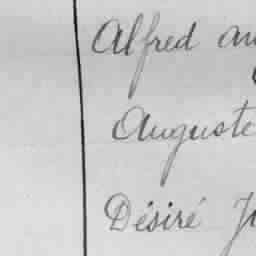 Alfred
Auguste
Désiré